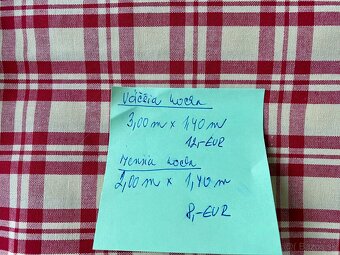 Väčšia kocka
3,00 m x 1,40 m
12,- EUR
kocka
2,00 m x 1,40 m
8,- EUR